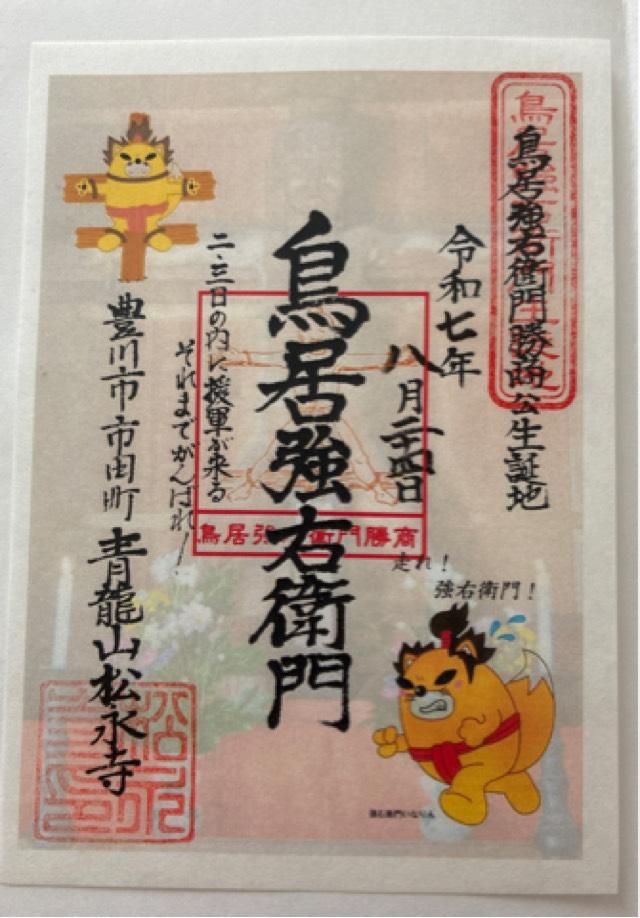 鳥居強右衛門勝商公生誕地
令和七年
八月二十四日
鳥居強右衛門
鳥居強右衛門勝商
二、三日の内に援軍が来る
それまでがんばれ！
豊川市市田町 青龍山松永寺
走れ！
強右衛門！
強右衛門いなりん